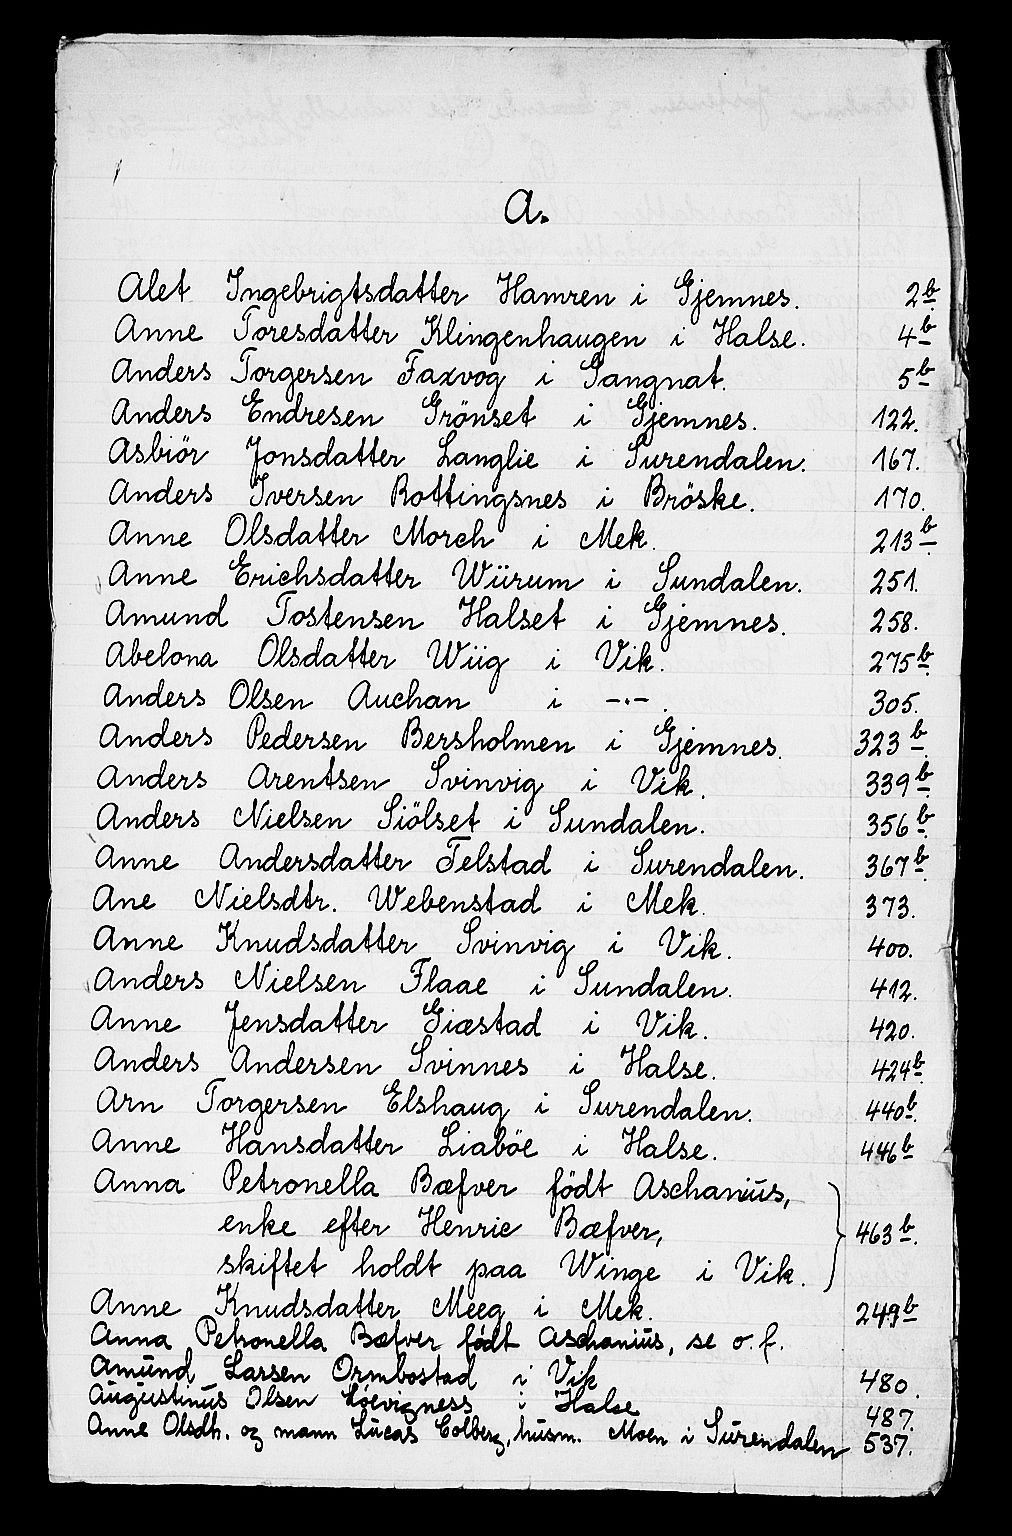 A.
Alet Ingebrigtsdatter Hamren i Gjemnes. 2b
Anne Toresdatter Klingenhaugen i Halse. 4b
Anders Torgersen Faxvog i Sangnat. 5b
Anders Endresen Grönset i Gjemnes. 122.
Asbiör Jonsdatter Langlie i Surendalen. 167.
Anders Iversen Rottingsnes i Bröske. 170.
Anne Olsdatter Morch i Mek. 213b.
Anne Erichsdatter Würum i Sundalen. 251.
Amund Tostensen Halset i Gjemnes. 258.
Abelona Olsdatter Wiig i Vik. 275b.
Anders Olsen Auchan i -·-. 305.
Anders Pedersen Bersholmen i Gjemnes. 323b.
Anders Arentsen Svinvig i Vik. 339b.
Anders Nielsen Siölset i Sundalen. 356b.
Anne Andersdatter Telstad i Surendalen. 367b.
Ane Nielsdtr. Webenstad i Mek. 373.
Anne Knudsdatter Svinvig i Vik. 400.
Anders Nielsen Flaae i Sundalen. 412.
Anne Jensdatter Giæstad i Vik. 420.
Anders Andersen Svinnes i Halse. 424b.
Arn Torgersen Elshaug i Surendalen. 440b.
Anne Hansdatter Liaböe i Halse. 446b
Anna Petronella Bæfver födt Aschanius,
enke efter Henric Bæfver, 463b.
skiftet holdt paa Winge i Vik.
Anne Knudsdatter Meeg i Mek. 249b
Anna Petronella Bæfver født Aschanius, se o. f.
Amund Larsen Ormbostad i Vik 480.
Augustinus Olsen Løevigness i Halse 487.
Anne Olsdtr. og mann Lucas Colberg, husm. Moen i Surendalen 537.